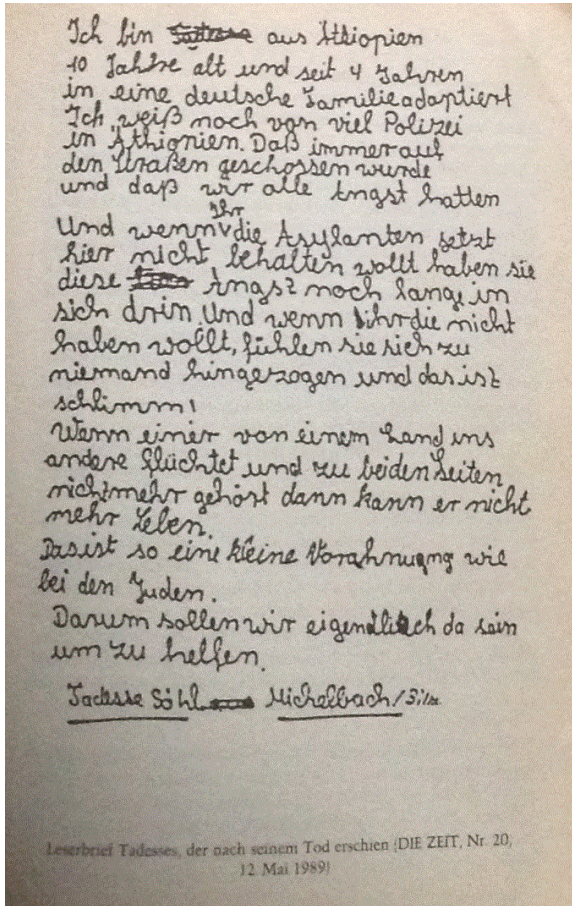 Ich bin Tadesse aus Äthiopien
10 Jahtre alt und seit 4 Jahren
in eine deutsche Familie adaptiert
Ich weiß noch von viel Polizei
in Äthionien. Daß immer auf
den Straßen geschossen wurde
und daß wir alle Angst hatten
Ihr
Und wenn die Asylanten jetzt
hier nicht behalten wollt haben sie
diese Angst noch lange in
sich drin. Und wenn ihr die nicht
haben wollt, fühlen sie sich zu
niemand hingezogen und das ist
schlimm!
Wenn einer von einem Land ins
andere flüchtet und zu beiden Seiten
nichtmehr gehört dann kann er nicht
mehr Leben.
Das ist so eine kleine Vorahnugng wie
bei den Juden.
Darum sollen wir eigendlich da sein
um zu helfen.
Tadesse Söhl Michelbach/Bilz
Leserbrief Tadesses, der nach seinem Tod erschien (DIE ZEIT, Nr. 20,
12 Mai 1989)